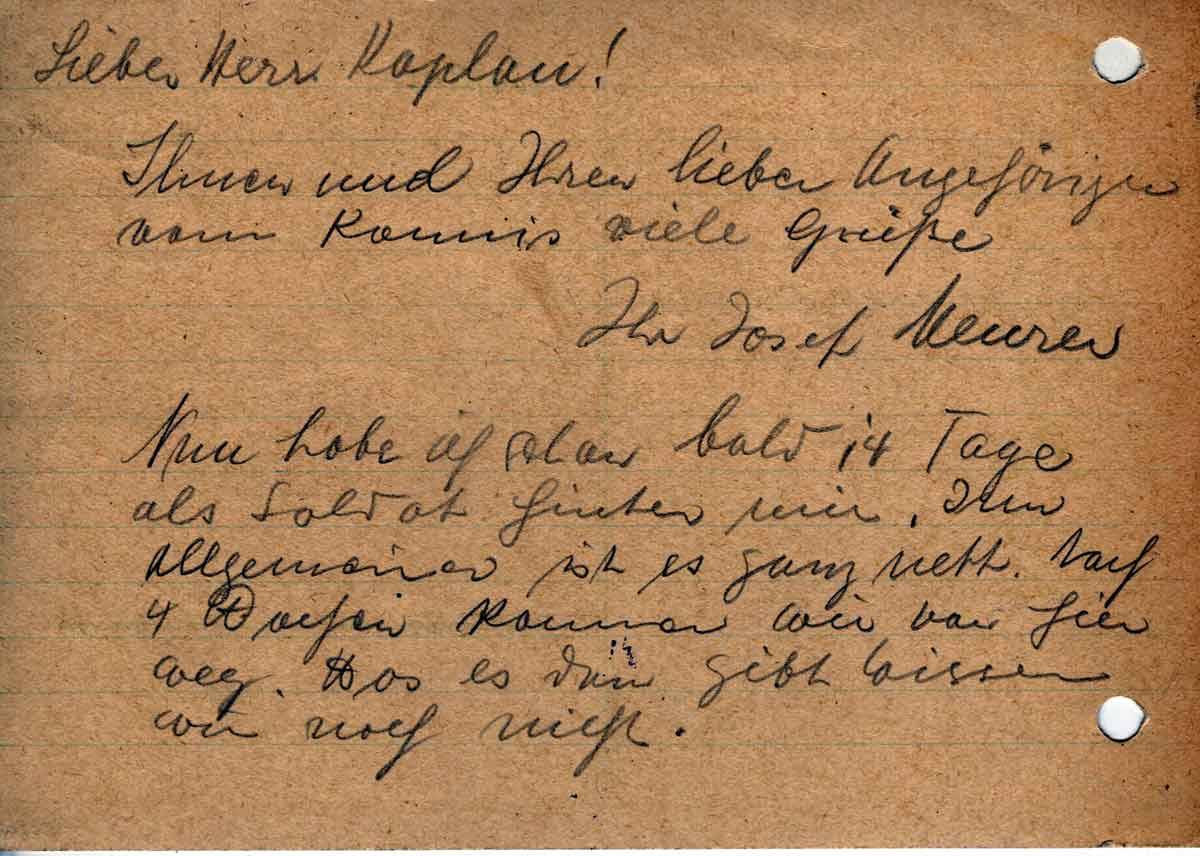 Lieber Herr Kaplan!
Ihnen und Ihren lieben Angehörigen
vom Kommis viele Grüße
Ihr Josef Meurer
Nun habe ich schon bald 14 Tage
als Soldat hinter mir. Im
allgemeinen ist es ganz nett. Nach
4 Wochen kommen wir von hier
weg. Was es dann gibt wissen
wir noch nicht.